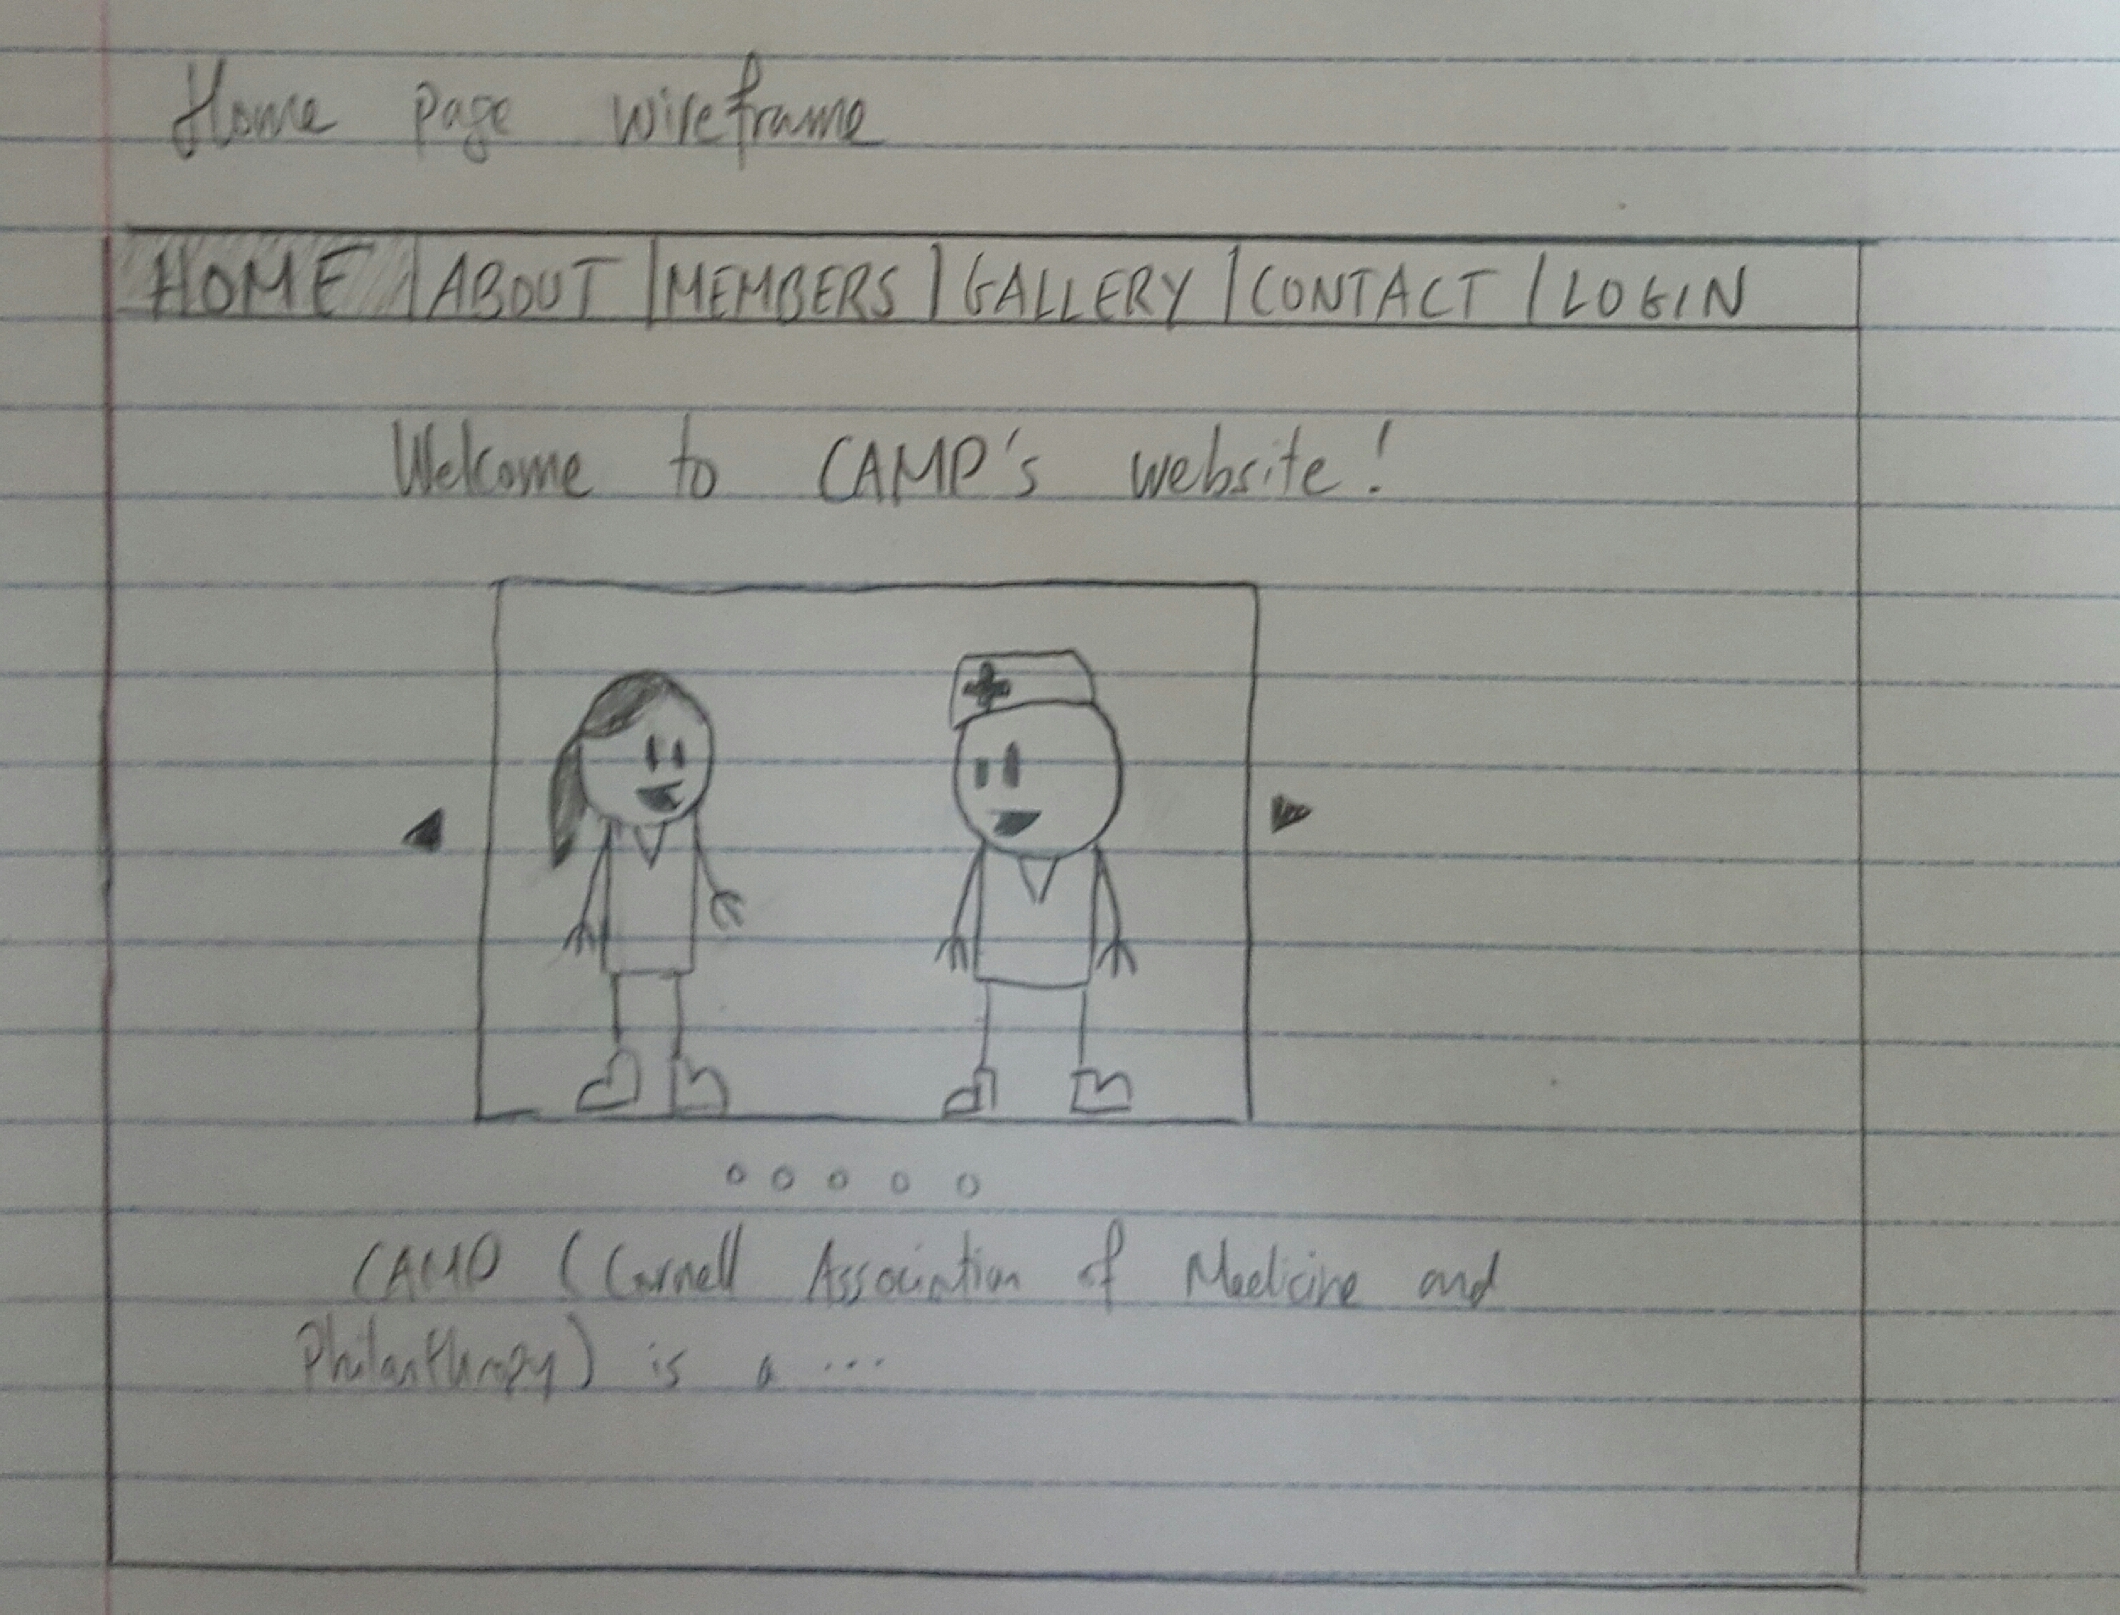 Home page wireframe
HOME | ABOUT | MEMBERS | GALLERY | CONTACT | LOGIN
Welcome to CAMP's website!
CAMP (Cornell Association of Medicine and
Philanthropy) is a ...